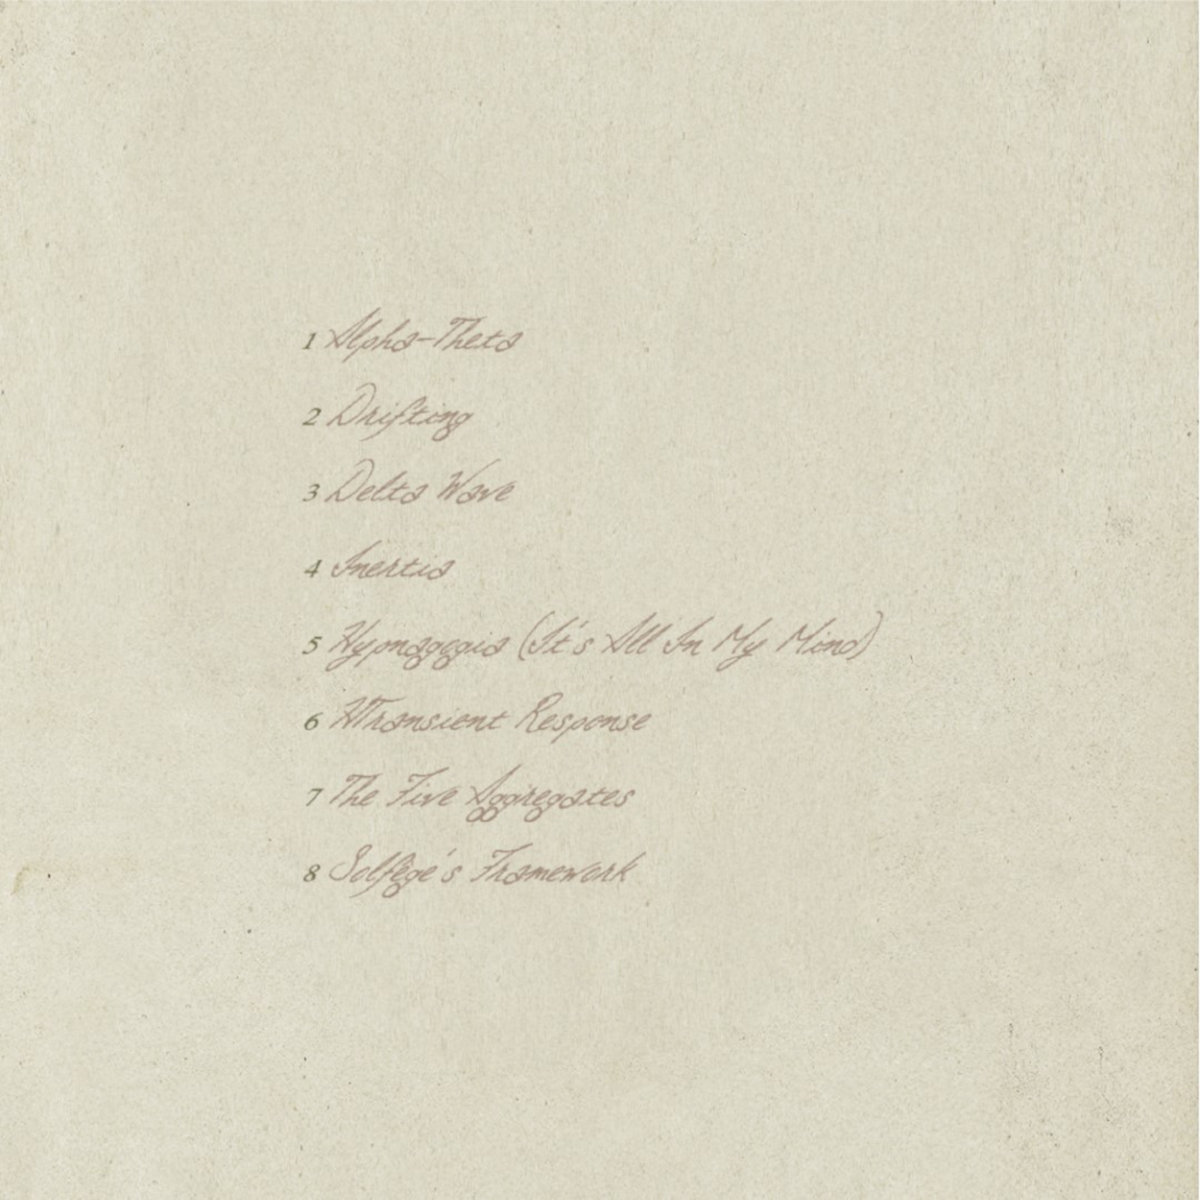 1 Alpha-Theta
2 Drifting
3 Delta Wave
4 Inertia
5 Hypnagogia (It's All In My Mind)
6 HTransient Response
7 The Five Aggregates
8 Solfège's Framework